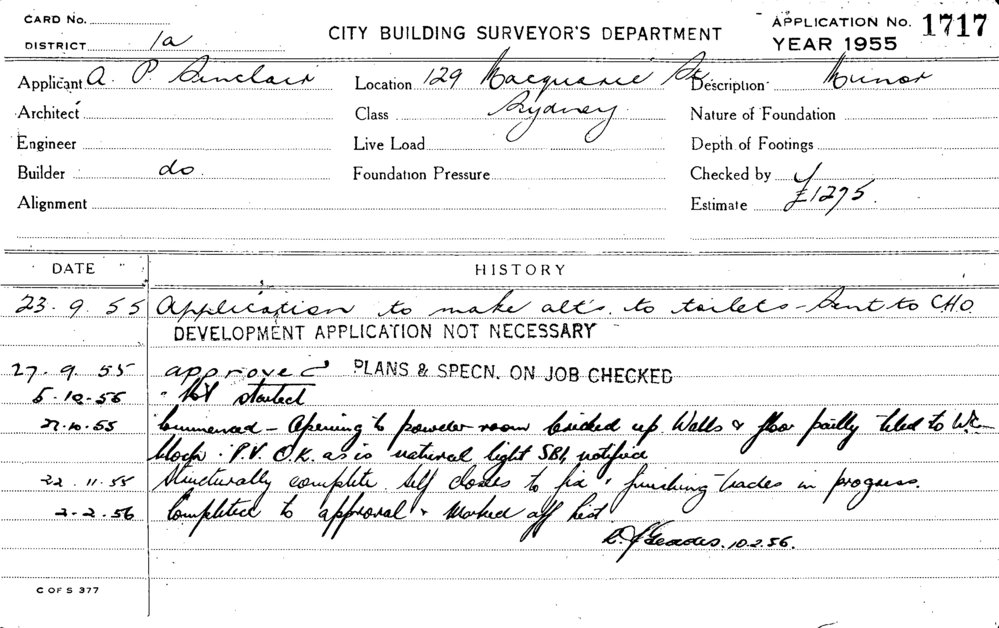 CARD No.
DISTRICT 1a
CITY BUILDING SURVEYOR'S DEPARTMENT
APPLICATION No. 1717
YEAR 1955
Applicant A. P. Sinclair Location 129 Macquarie St Description Minor
Architect Class Sydney Nature of Foundation
Engineer Live Load Depth of Footings
Builder do Foundation Pressure Checked by
Alignment Estimate £1275.
DATE HISTORY
23.9.55 Application to make alts. to toilets - Sent to C.H.O.
DEVELOPMENT APPLICATION NOT NECESSARY
27.9.55 approved PLANS & SPECN. ON JOB CHECKED
5.10.56 Not started
27.10.55 Commenced - Opening to powder room bricked up. Walls & floor partly tiled to W.C.
block. P.V. O.K. as is natural light SBI, notified
22.11.55 Structurally complete. Self closes to fix & finishing trades in progress.
2.2.56 Completed to approval & marked off list
10.2.56.
C OF S 377